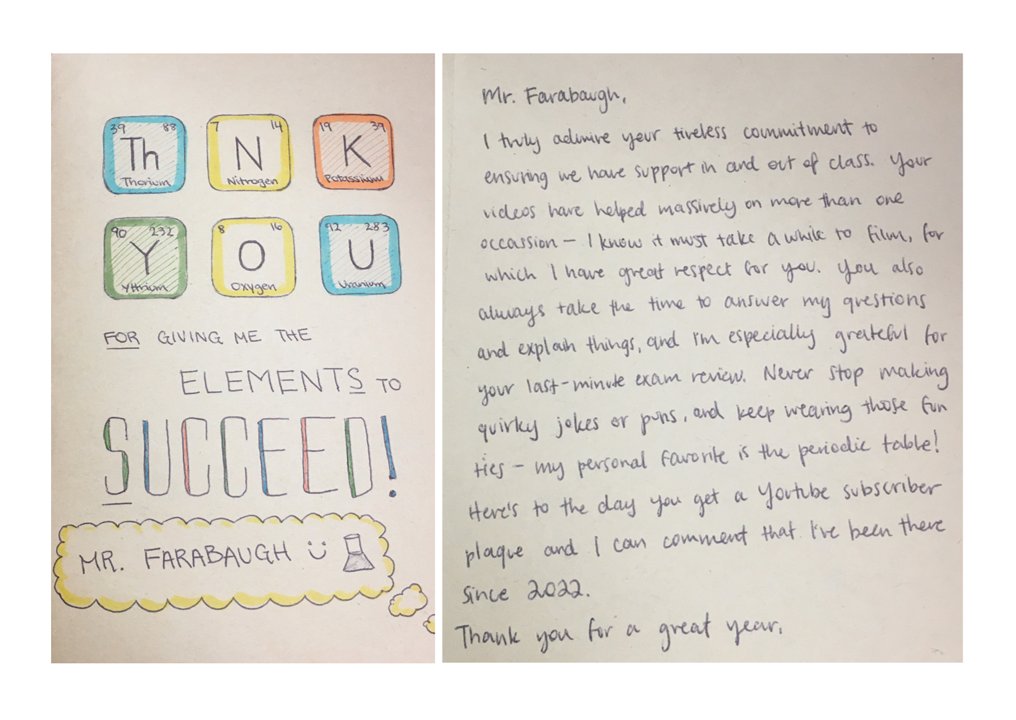 39 88 7 14 19 39
Th N K
Thorium Nitrogen Potassium
90 232 8 16 92 283
Y O U
Yttrium Oxygen Uranium
FOR GIVING ME THE
ELEMENTS TO
SUCCEED!
MR. FARABAUGH
Mr. Farabaugh,
I truly admire your tireless commitment to
ensuring we have support in and out of class. Your
videos have helped massively on more than one
occassion – I know it must take a while to film, for
which I have great respect for you. You also
always take the time to answer my questions
and explain things, and I'm especially grateful for
your last-minute exam review. Never stop making
quirky jokes or puns, and keep wearing those fun
ties – my personal favorite is the periodic table!
Here's to the day you get a Youtube subscriber
plaque and I can comment that I've been there
since 2022.
Thank you for a great year.